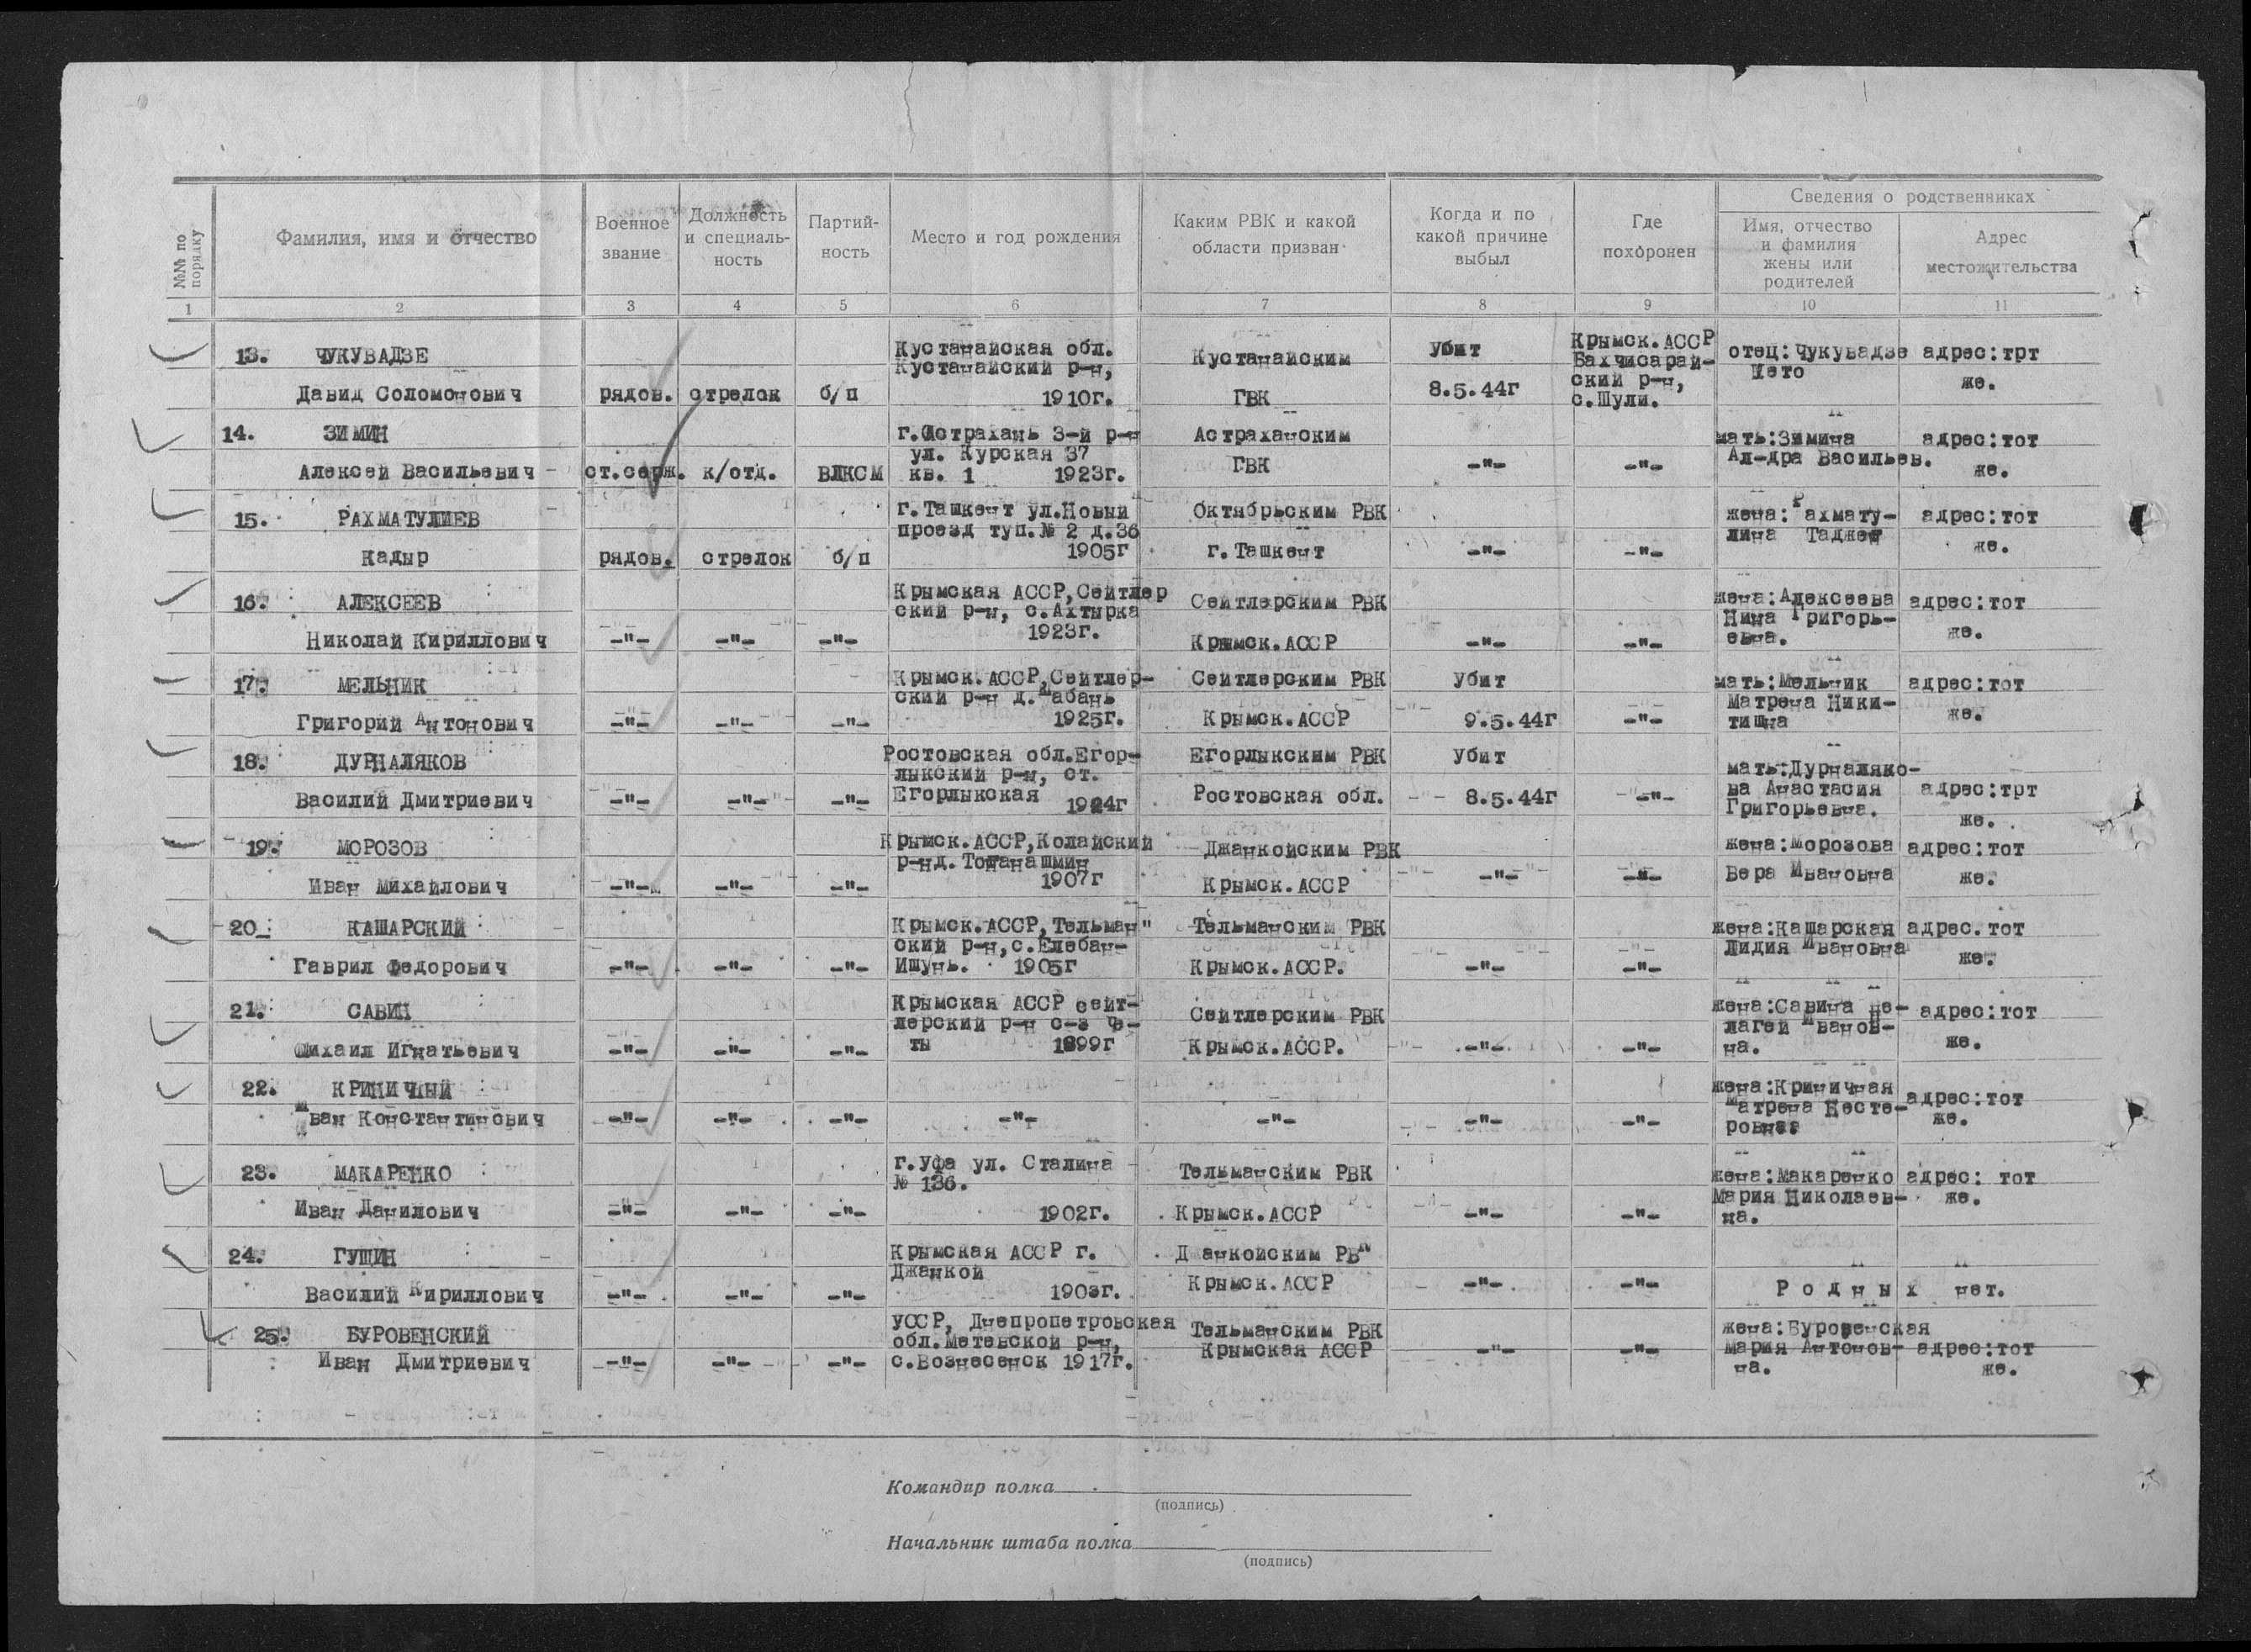 №№ по порядку
Фамилия, имя и отчество
Военное звание
Должность и специаль-ность
Партий-ность
Место и год рождения
Каким РВК и какой области призван
Когда и по какой причине выбыл
Где похоронен
Сведения о родственниках
Имя, отчество и фамилия жены или родителей
Адрес местожительства
1 2 3 4 5 6 7 8 9 10 11
13. ЧУКУВАДЗЕ
Давид Соломонович
рядов. стрелок б/п
Кустанайская обл.
Кустанайский р-н,
1910г.
Кустанайским
ГВК
Убит
8.5.44г
Крымск.АССР
Бахчисарай-
ский р-н,
с.Шули.
отец:Чукувадзе
адрес:трт
же.
14. ЗИМИН
Алексей Васильевич
ст.серж. к/отд. ВЛКСМ
г.Астрахань 3-й р-н
ул. Курская 37
кв. 1 1923г.
Астраханским
ГВК
-"- -"-
мать:Зимина
Ал-дра Васильев.
адрес:тот
же.
15. РАХМАТУЛИЕВ
Кадыр
рядов. стрелок б/п
г.Ташкент ул.Новый
проезд туп.№ 2 д.36
1905г
Октябрьским РВК
г.Ташкент
-"- -"-
жена: Рахмату-
лина
адрес:тот
же.
16. АЛЕКСЕЕВ
Николай Кириллович
-"- -"- -"-
Крымская АССР,Сейтлер
ский р-н, с.Ахтырка
1923г.
Сейтлерским РВК
Крымск.АССР
-"- -"-
жена:Алексеева
Нина Григорь-
евна.
адрес:тот
же.
17. МЕЛЬНИК
Григорий Антонович
-"- -"- -"-
Крымск.АССР,Сейтлер-
ский р-н д.Шабань
1925г.
Сейтлерским РВК
Крымск.АССР
Убит
9.5.44г
-"-
мать:Мельник
Матрена Ники-
тишна
адрес:тот
же.
18. ДУРНАЛЯКОВ
Василий Дмитриевич
-"- -"- -"-
Ростовская обл.Егор-
лыкский р-н, ст.
Егорлыкская 1924г
Егорлыкским РВК
Ростовская обл.
Убит
8.5.44г
-"-
мать:Дурналяко-
ва Анастасия
Григорьевна.
адрес:трт
же.
19. МОРОЗОВ
Иван Михайлович
-"- -"- -"-
Крымск.АССР,Колайский
р-нд.
1907г
Джанкойским РВК
Крымск.АССР
-"- -"-
жена:Морозова
Вера Ивановна
адрес:тот
же.
20. КАШАРСКИЙ
Гаврил Федорович
-"- -"- -"-
Крымск.АССР,Тельман"
ский р-н,с.Елебан-
Ишунь. 1905г
Тельманским РВК
Крымск.АССР.
-"- -"-
жена:Кашарская
Лидия Ивановна
адрес.тот
же.
21. САВИН
Михаил Игнатьевич
-"- -"- -"-
Крымская АССР сейт-
лерский р-н с-з Че-
ты 1899г
Сейтлерским РВК
Крымск.АССР.
-"- -"-
жена:Савина Пе-
лагей Иванов-
на.
адрес:тот
же.
22. КРИНИЧНЫЙ
Иван Константинович
-"- -"- -"- -"- -"- -"- -"-
жена:Криничная
Матрена Несте-
ровна.
адрес:тот
же.
23. МАКАРЕНКО
Иван Данилович
-"- -"- -"-
г.Уфа ул. Сталина
№ 136.
1902г.
Тельманским РВК
Крымск.АССР
-"- -"-
жена:Макаренко
Мария Николаев-
на.
адрес: тот
же.
24. ГУЩИН
Василий Кириллович
-"- -"- -"-
Крымская АССР г.
Джанкой
1903г.
Д анкойским РВК
Крымск.АССР
-"- -"-
Родных нет.
25. БУРОВЕНСКИЙ
Иван Дмитриевич
-"- -"- -"-
УССР, Днепропетровская
обл.Метевской р-н,
с.Вознесенск 1917г.
Тельманским РВК
Крымская АССР
-"- -"-
жена:Буровенская
Мария Антонов-
на.
адрес:тот
же.
Командир полка
(подпись)
Начальник штаба полка
(подпись)